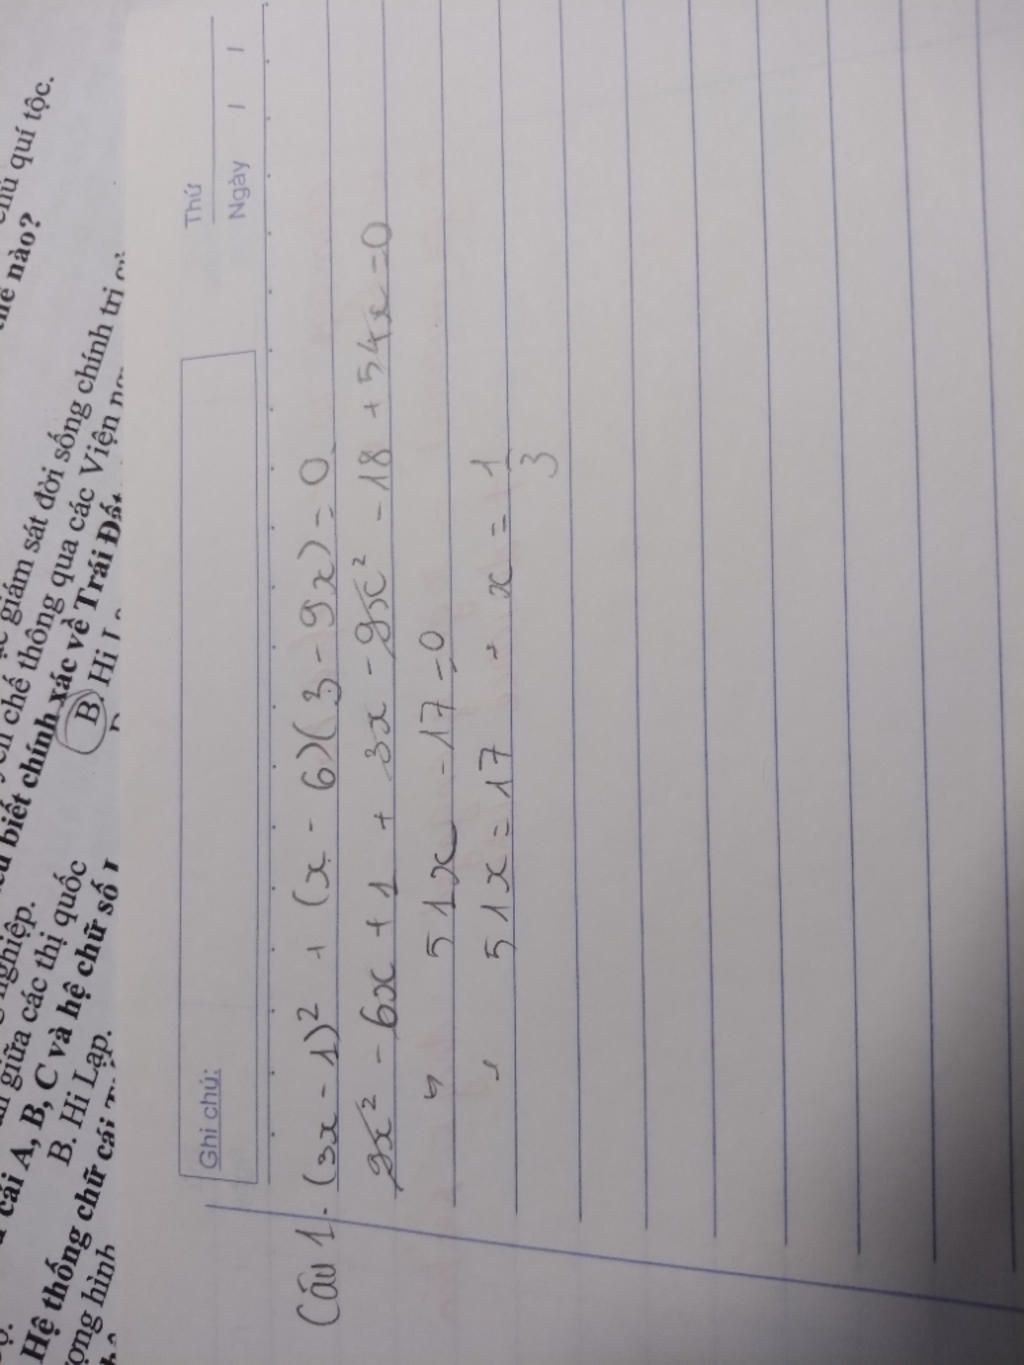 chủ quí tộc.
thế nào?
giám sát đời sống chính trị
chế thông qua các Viện
biết chính xác về Trái Đất
B. Hi L
nghiệp.
giữa các thị quốc
cái A, B, C và hệ chữ số I
B. Hi Lạp.
Hệ thống chữ cái
ượng hình
Ghi chú:
Thứ
Ngày / /
Câu 1. (3x - 1)² + (x - 6)(3 - 9x) = 0
9x² - 6x + 1 + 3x - 9x² - 18 + 54x = 0
51x - 17 = 0
51x = 17 x = 1/3